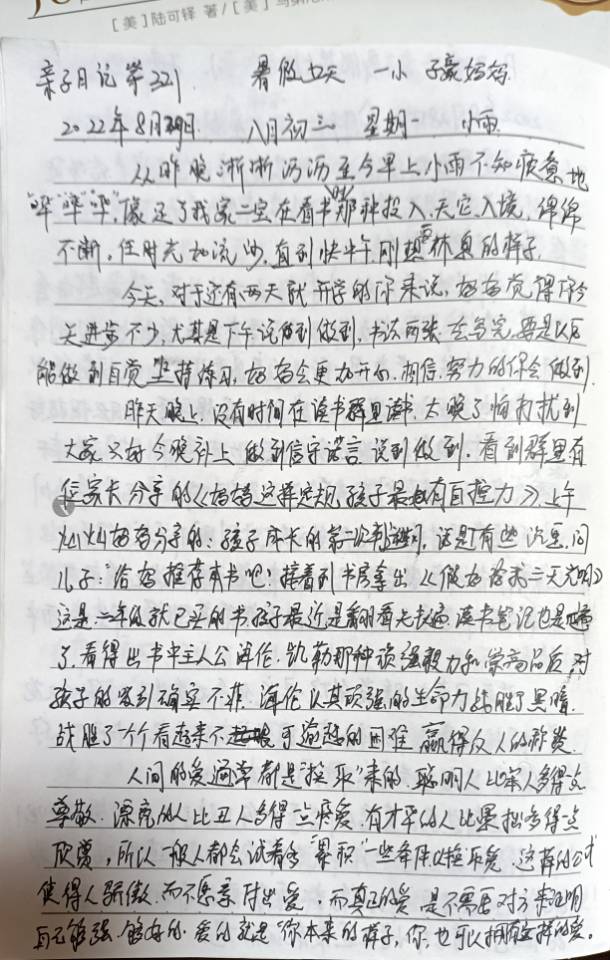 [美]陆可铎 著/[美]
亲子日记第321 暑假52天 一小 子豪妈妈
2022年8月29日 八月初三 星期一 小雨
从昨晚淅淅沥沥至今早上小雨不知疲惫地
"哗""哗""哗",像足了我家二宝在看书时那种投入、忘它、入境,绵绵
不断,任时光如流沙,直到快半午刚想要休息的样子。
今天,对于还有两天就开学的你来说,妈妈觉得你今
天进步不少,尤其是下午说做到做到,书法两张 要是以后
能做到自觉坚持练习,妈妈会更加开心,相信努力的你会做到。
昨天晚上,没有时间在读书群里读书,太晚了怕打扰到
大家,又好今晚补上,做到信守诺言,说到做到。看到群里有
位家长分享的《妈妈这样定规,孩子最有自控力》上午
灿灿妈妈分享的:孩子成长的第二次 ,还是有些 ,问
儿子:"给妈推荐本书吧!接着到书房拿出《假如给我三天光明》
这是二年级就已买的书,孩子最近是翻看 遍,读书笔记也是
了,看得出书中主人公海伦·凯勒那种顽强毅力和崇高品质,对
孩子的吸引确实不菲,海伦以其顽强的生命力战胜了黑暗,
战胜了一个个看起来不可逾越的困难,赢得众人的称赞。
人间的爱通常都是"换取"来的,聪明人比笨人多得一点
尊敬,漂亮的人比丑人多得一点怜爱,有才华的人比愚拙多得一点
欣赏,所以一般人都会试着多"累积"一些条件以换取爱,这样的公式
使得人骄傲,而不愿意付出爱,而真正的爱,是不需要对方来证明
自己够强、够好的,爱的就是"你本来的样子,你,也可以拥有这样的爱。